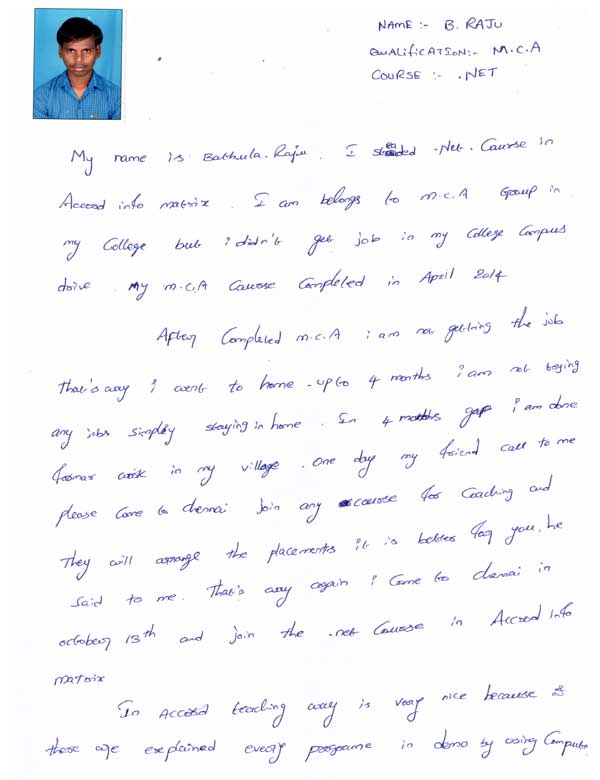 NAME :- B. RAJU
QUALIFICATION:- M.C.A
COURSE :- .NET
My name is Bathula. Raju. I studed .Net. Course in
Accord info matrix. I am belongs to M.C.A Group in
my College but i didn't get job in my College Campus
drive. My M.C.A Course Completed in April 2014
After Completed M.C.A i am not getting the job
That's way i went to home. upto 4 months i am not trying
any jobs simply staying in home. In 4 months gap i am done
former work in my village. One day my friend call to me
please come to chennai Join any course for Coaching and
They will arrange the placements it is better for you, he
said to me. That's way again i come to chennai in
october 13th and join the .net Course in Accord Info
matrix
In Accord teaching way is very nice because
there are explained every programe in demo by using Compute